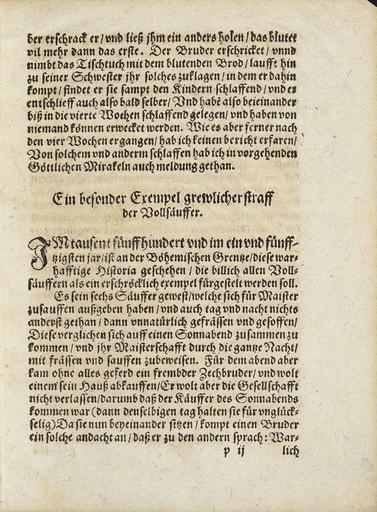 ber erschrack er/ vnd ließ jhm ein anders holen/ das blutet
vil mehr dann das erste. Der Bruder erschricket/ vnnd
nimbt das Tischtuch mit dem blutenden Brod/ laufft hin
zu seiner Schwester jhr solches zuklagen/ in dem er dahin
kompt/ findet er sie sampt den Kindern schlaffend/ vnd er
entschlieff auch also bald selber/ Vnd habē also beieinander
biß in die vierte Wochen schlaffend gelegen/ vnd haben von
niemand können erwecket werden. Wie es aber ferner nach
den vier Wochen ergangen/ hab ich keinen bericht erfaren/
Von solchem vnd andern schlaffen hab ich in vorgehenden
Göttlichen Mirakeln auch meldung gethan.
Ein besonder Exempel grewlicher straff
der Vollsäuffer.
IM tausent fünffhundert vnd im ein vnd fünff-
tzigsten jar/ ist an der Böhemischen Grentze/ diese war-
hafftige Historia geschehen/ die billich allen Voll-
säuffern als ein erschröcklich exempel fürgestelt werden soll.
Es sein sechs Säuffer gewest/ welche sich für Maister
zusauffen außgeben haben/ vnd auch tag vnd nacht nichts
anderst gethan/ dann vnnatürlich gefrässen vnd gesoffen/
Diese verglichen sich auff einen Sonnabend zusammen zu
kommen/ vnd jhr Maisterschafft durch die gantze Nacht/
mit frässen vnd sauffen zubeweisen. Für dem abend aber
kam ohne alles geferd ein frembder Zechbruder/ vnd wolt
einem sein Hauß abkauffen/ Er wolt aber die Gesellschafft
nicht verlassen/ darumb daß der Käuffer des Sonnabends
kommen war (dann denselbigen tag halten sie für vnglück-
selig) Da sie nun beyeinander sitzen/ kompt einen Bruder
ein solche andacht an/ daß er zu den andern sprach: War-
p ij lich